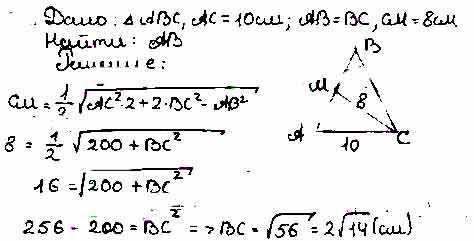 Дано: △ ABC, AC = 10см; AB = BC, CM = 8см
Найти: AB
Решение:
CM = 1/2 √(AC²·2 + 2·BC² - AB²)
8 = 1/2 √(200 + BC²)
16 = √(200 + BC²)
256 - 200 = BC² => BC = √56 = 2√14 (см)
B
M
8
A
C
10